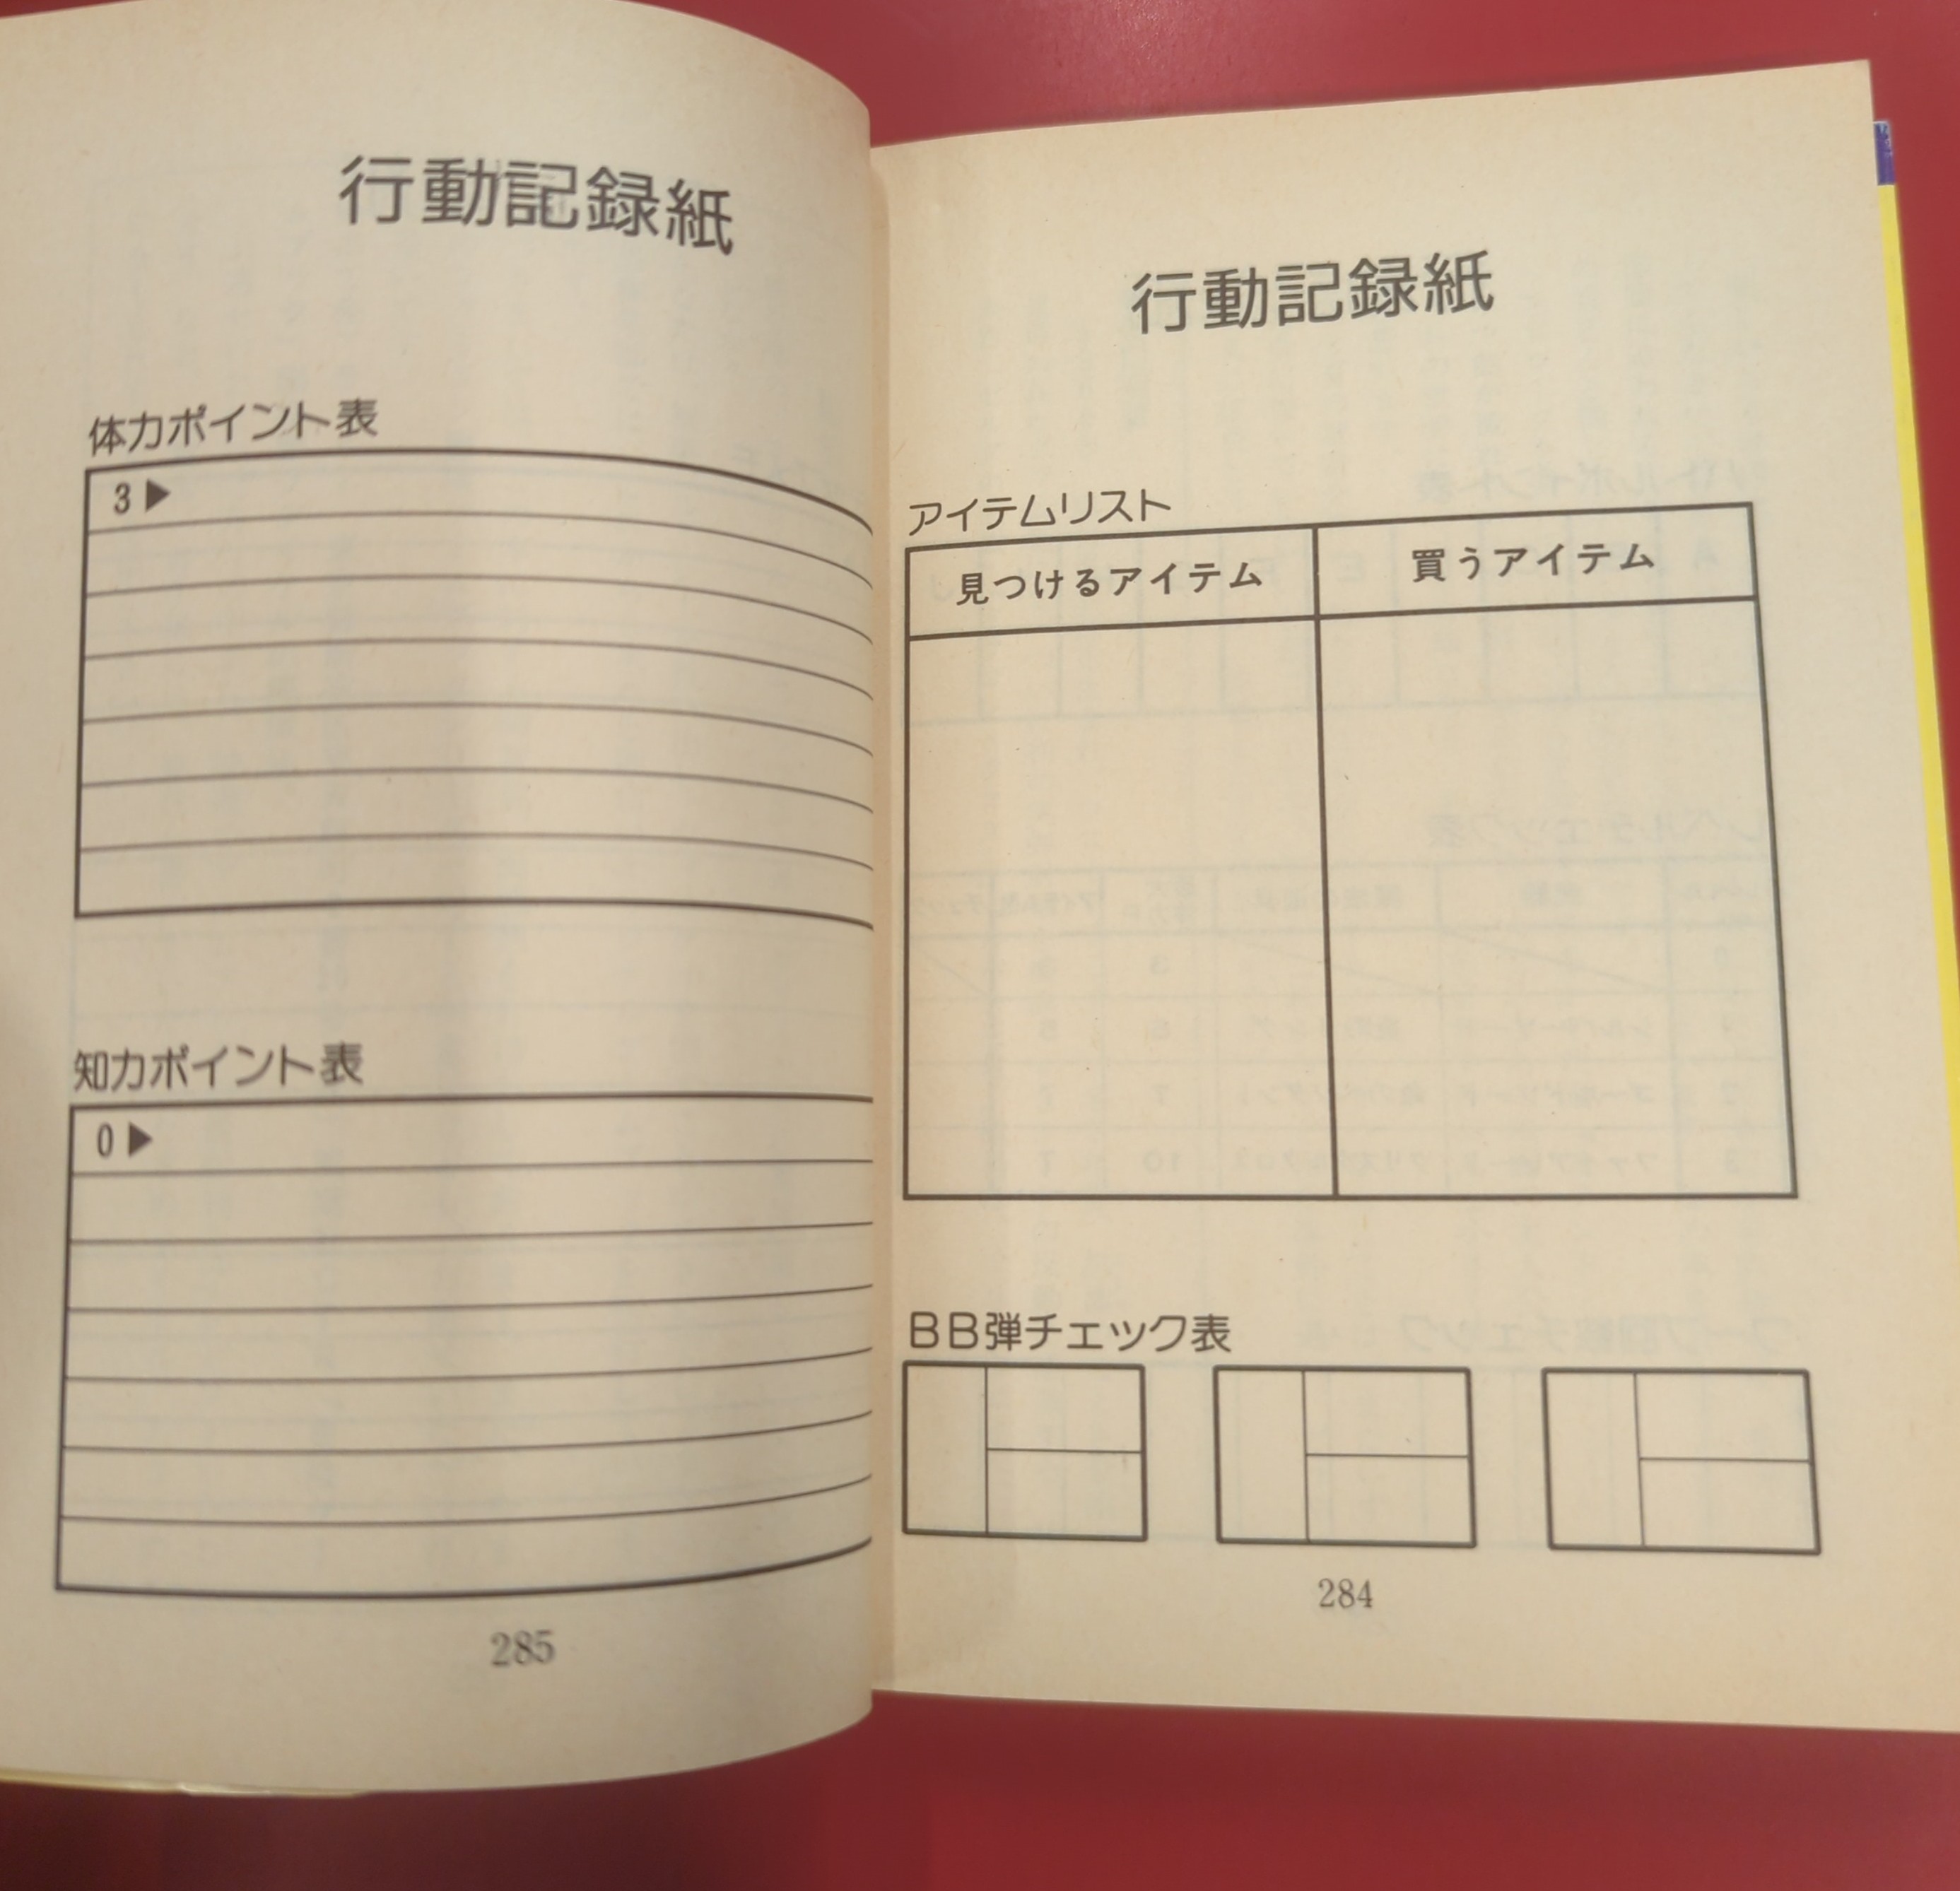 行動記録紙
アイテムリスト
見つけるアイテム
買うアイテム
BB弾チェック表
284
行動記録紙
体力ポイント表
3▶
知力ポイント表
0▶
285